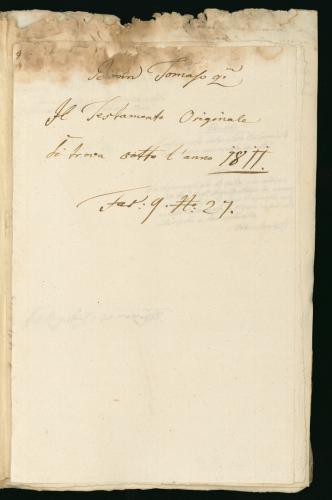 Tomaso qm
Il Testamento Originale
Si trova sotto l'anno 1811.
Fas: 9. N: 27.